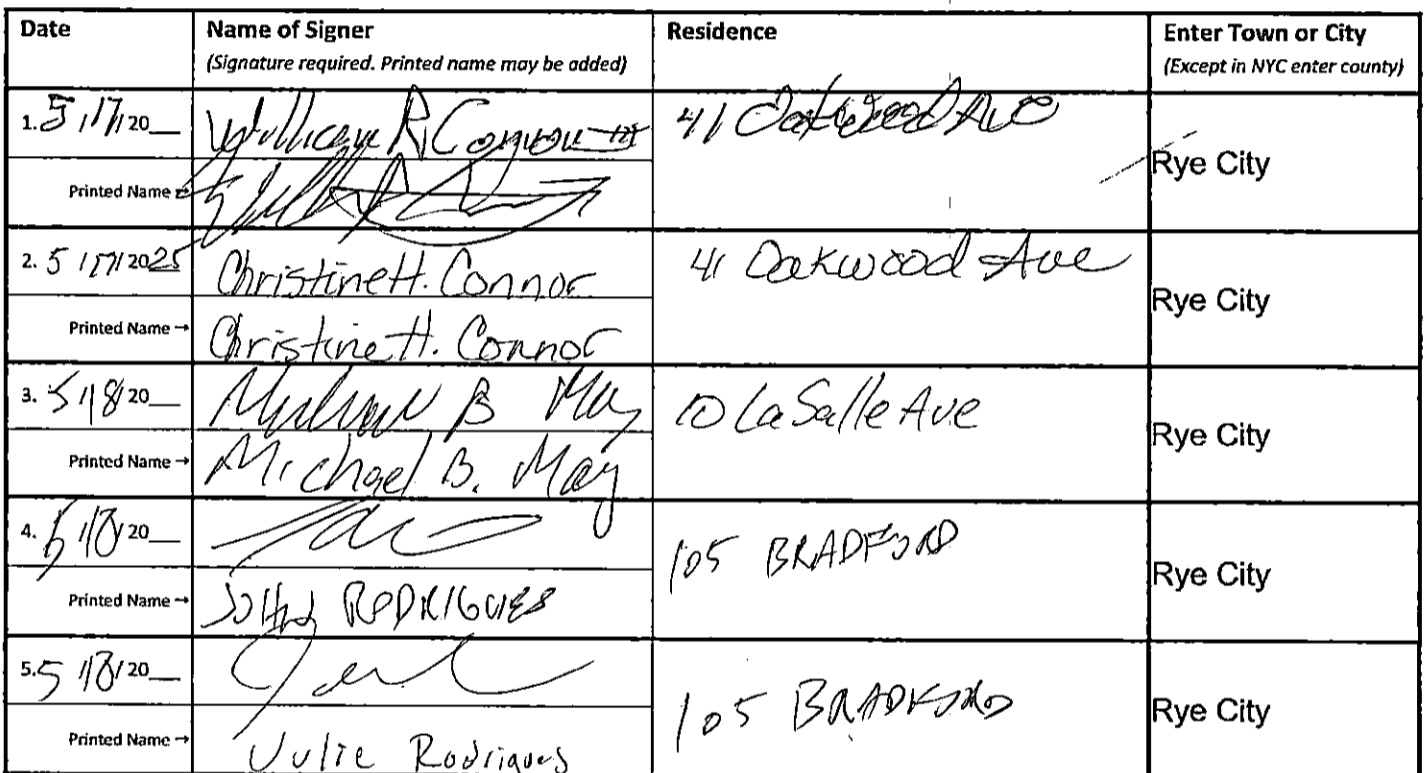 Date Name of Signer Residence Enter Town or City
(Signature required. Printed name may be added) (Except in NYC enter county)
1. 5/17/20__ William R Connor III 41 Oakwood Ave
Rye City
Printed Name →
2. 5/17/2025 Christine H. Connor 41 Oakwood Ave
Rye City
Printed Name → Christine H. Connor
3. 5/18/20__ Michael B May 10 LaSalle Ave
Rye City
Printed Name → Michael B. May
4. 5/18/20__ 105 BRADFORD
Rye City
Printed Name → JOHN RODRIGUES
5. 5/18/20__ 105 BRADFORD
Rye City
Printed Name → Julie Rodrigues